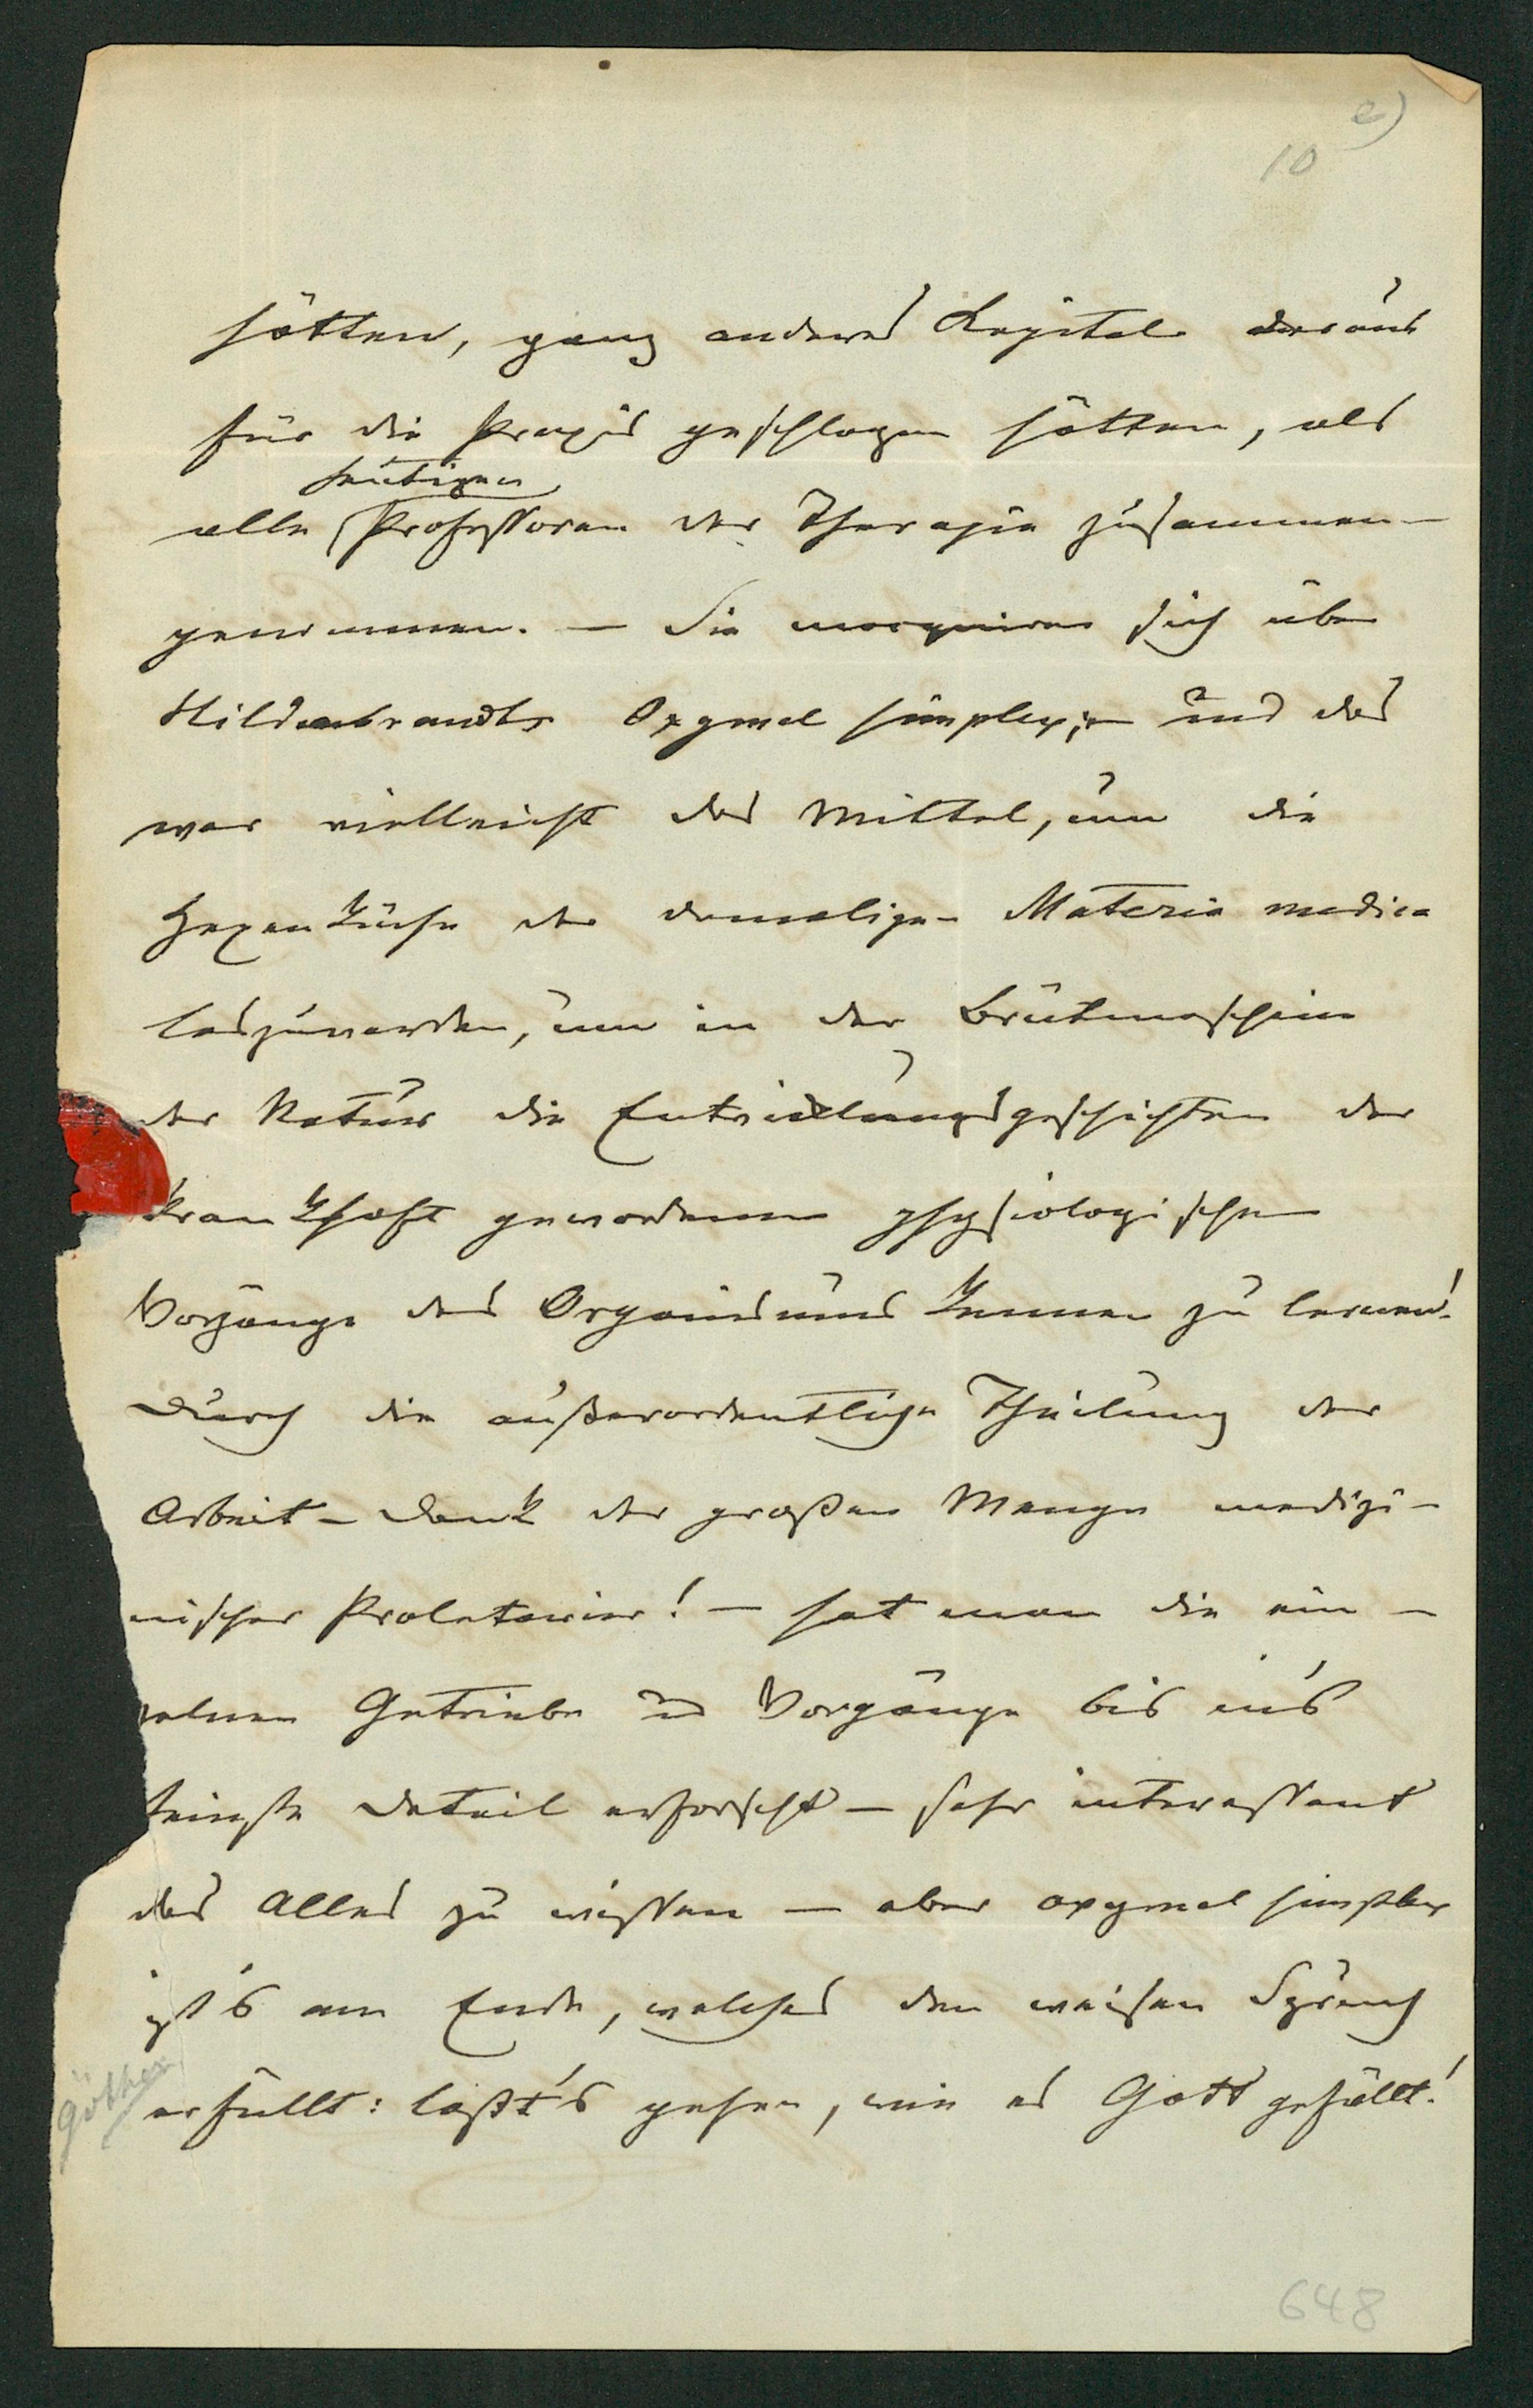 e)
10
hätten, ganz anderes Kapital daraus
für die Praxis geschlagen hätten, als
heutigen
alle Professoren der Therapie zusammen-
genommen. — Sie moquiren sich über
Hildenbrandts Oxymel simplex; — und das
war vielleicht das Mittel, um die
Hexenküche der damaligen Materia medica
loszuwerden, um in der Brütmaschine
der Natur die Entwicklungsgeschichten der
krankhaft gewordenen physiologischen
Vorgänge des Organismus kennen zu lernen!
Durch die außerordentliche Theilung der
Arbeit – Dank der großen Menge medizi-
nischer Proletarier! — hat man die ein-
zelnen Getriebe und Vorgänge bis in's
feinste Detail erforscht — sehr interessant
das Alles zu wissen — aber oxymel simplex
ist's am Ende, welches den weisen Spruch
Göthes
erfüllt: laßt's gehen, wie es Gott gefällt!
648